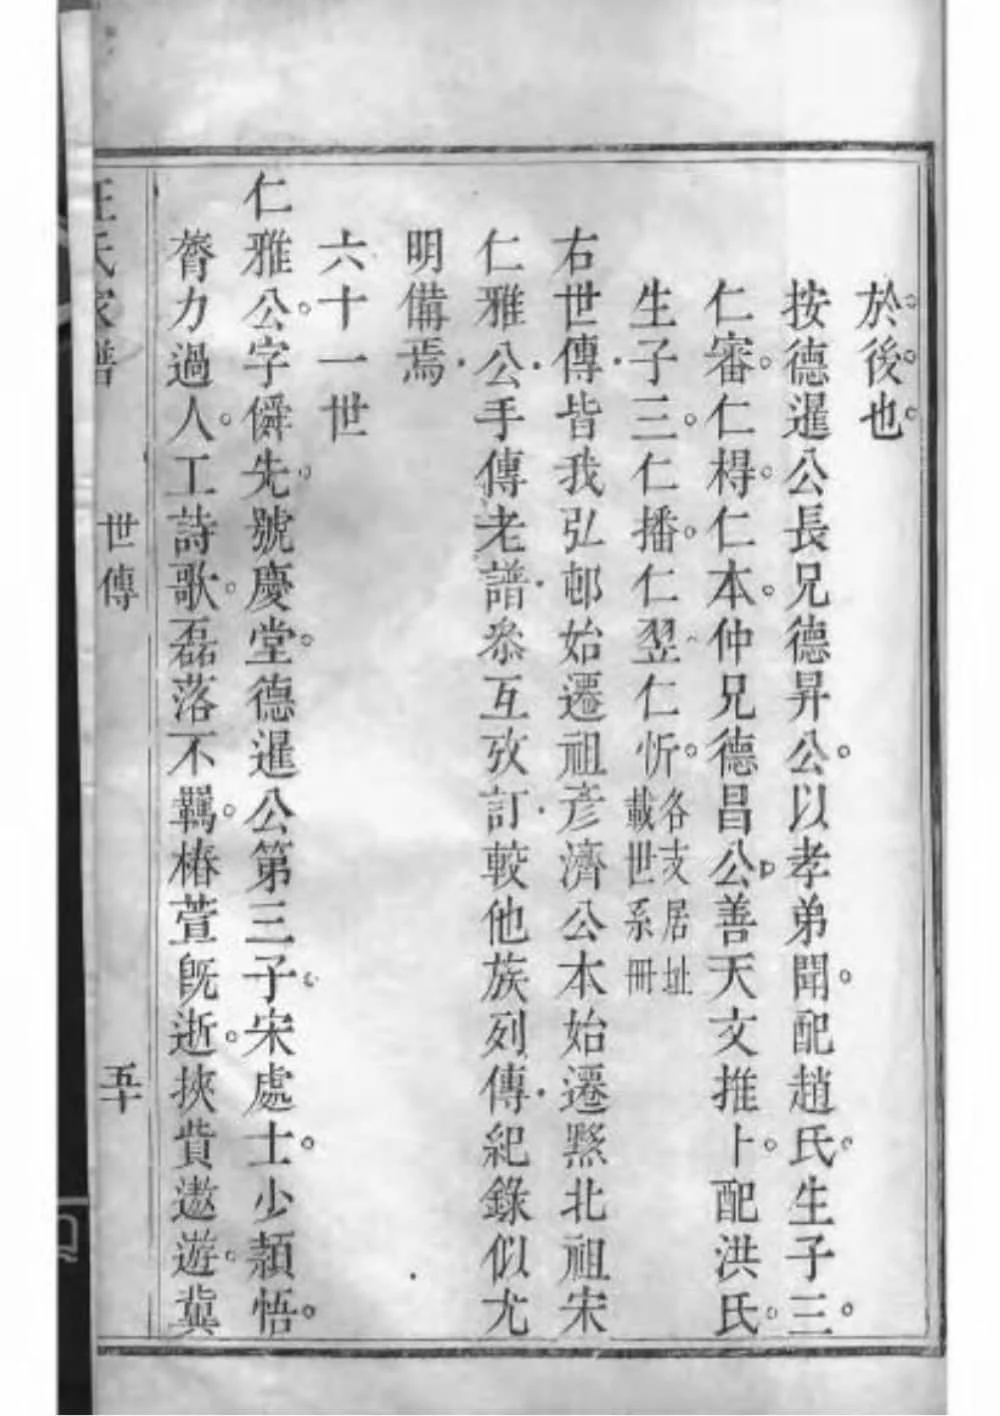 於後也
按德暹公長兄德昇公以孝弟聞配趙氏生子三
仁審仁棏仁本仲兄德昌公善天文推卜配洪氏
生子三仁播仁翌仁忻各支居址載世系冊
右世傳皆我弘邨始遷祖彥濟公本始遷黟北祖宋
仁雅公手傳老譜叅互攷訂較他族列傳紀錄似尤
明備焉
六十一世
仁雅公字僢先號慶堂德暹公第三子宋處士少穎悟
膂力過人工詩歌磊落不羈椿萱旣逝挾貲遨遊冀
汪氏家譜
世傳
五十